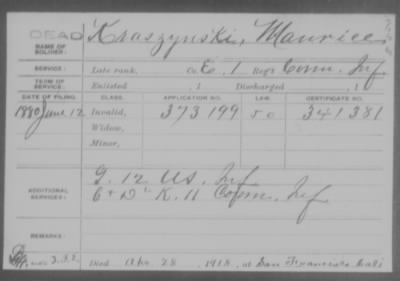 DEAD
NAME OF SOLDIER: Kraszynski, Maurice
SERVICE: Late rank, Co. E, 1 Reg't Conn. Inf.
TERM OF SERVICE: Enlisted , 1 Discharged , 1
DATE OF FILING. CLASS. APPLICATION NO. LAW. CERTIFICATE NO.
1880 June 12 Invalid, 373199 341381
Widow,
Minor,
G. 12 US. Inf
ADDITIONAL SERVICES: K. 11 Conn. Inf
REMARKS:
Died Apr 28, 1918, at San Francisco Cali